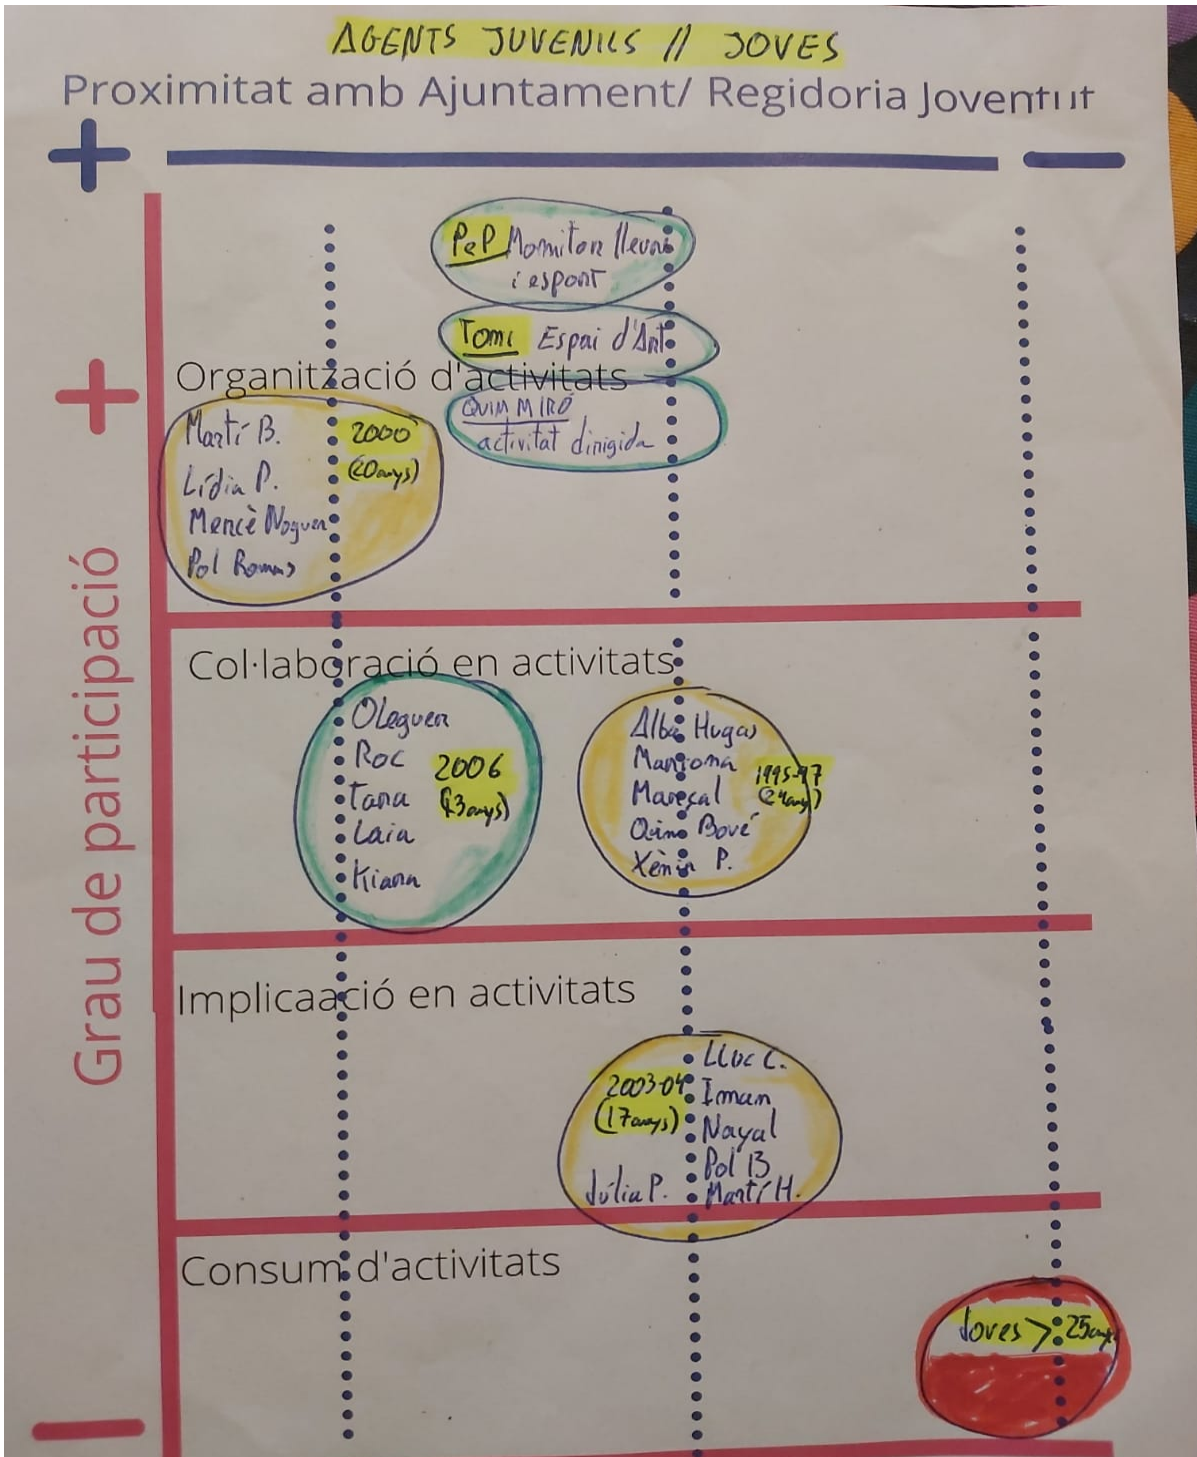 AGENTS JUVENILS // JOVES
Proximitat amb Ajuntament/ Regidoria Joventut
+
—
Grau de participació
+
PeP Monitor lleure
i esport
Tomi Espai d'Art
Organització d'activitats
QUIM MIRÓ
activitat dirigida
Martí B.
2000
(20anys)
Lídia P.
Mercè Noguer
Pol Romas
Col·laboració en activitats
Oleguer
Roc
Tana
Laia
Kiana
2006
(13anys)
Alba Hugas
Mariona
Marçal
Quim Bové
Xènia P.
1995-97
(24anys)
Implicaació en activitats
2003-04
(17anys)
Júlia P.
Lluc C.
Iman
Nayal
Pol B
Martí H.
Consum d'activitats
Joves > 25anys
—